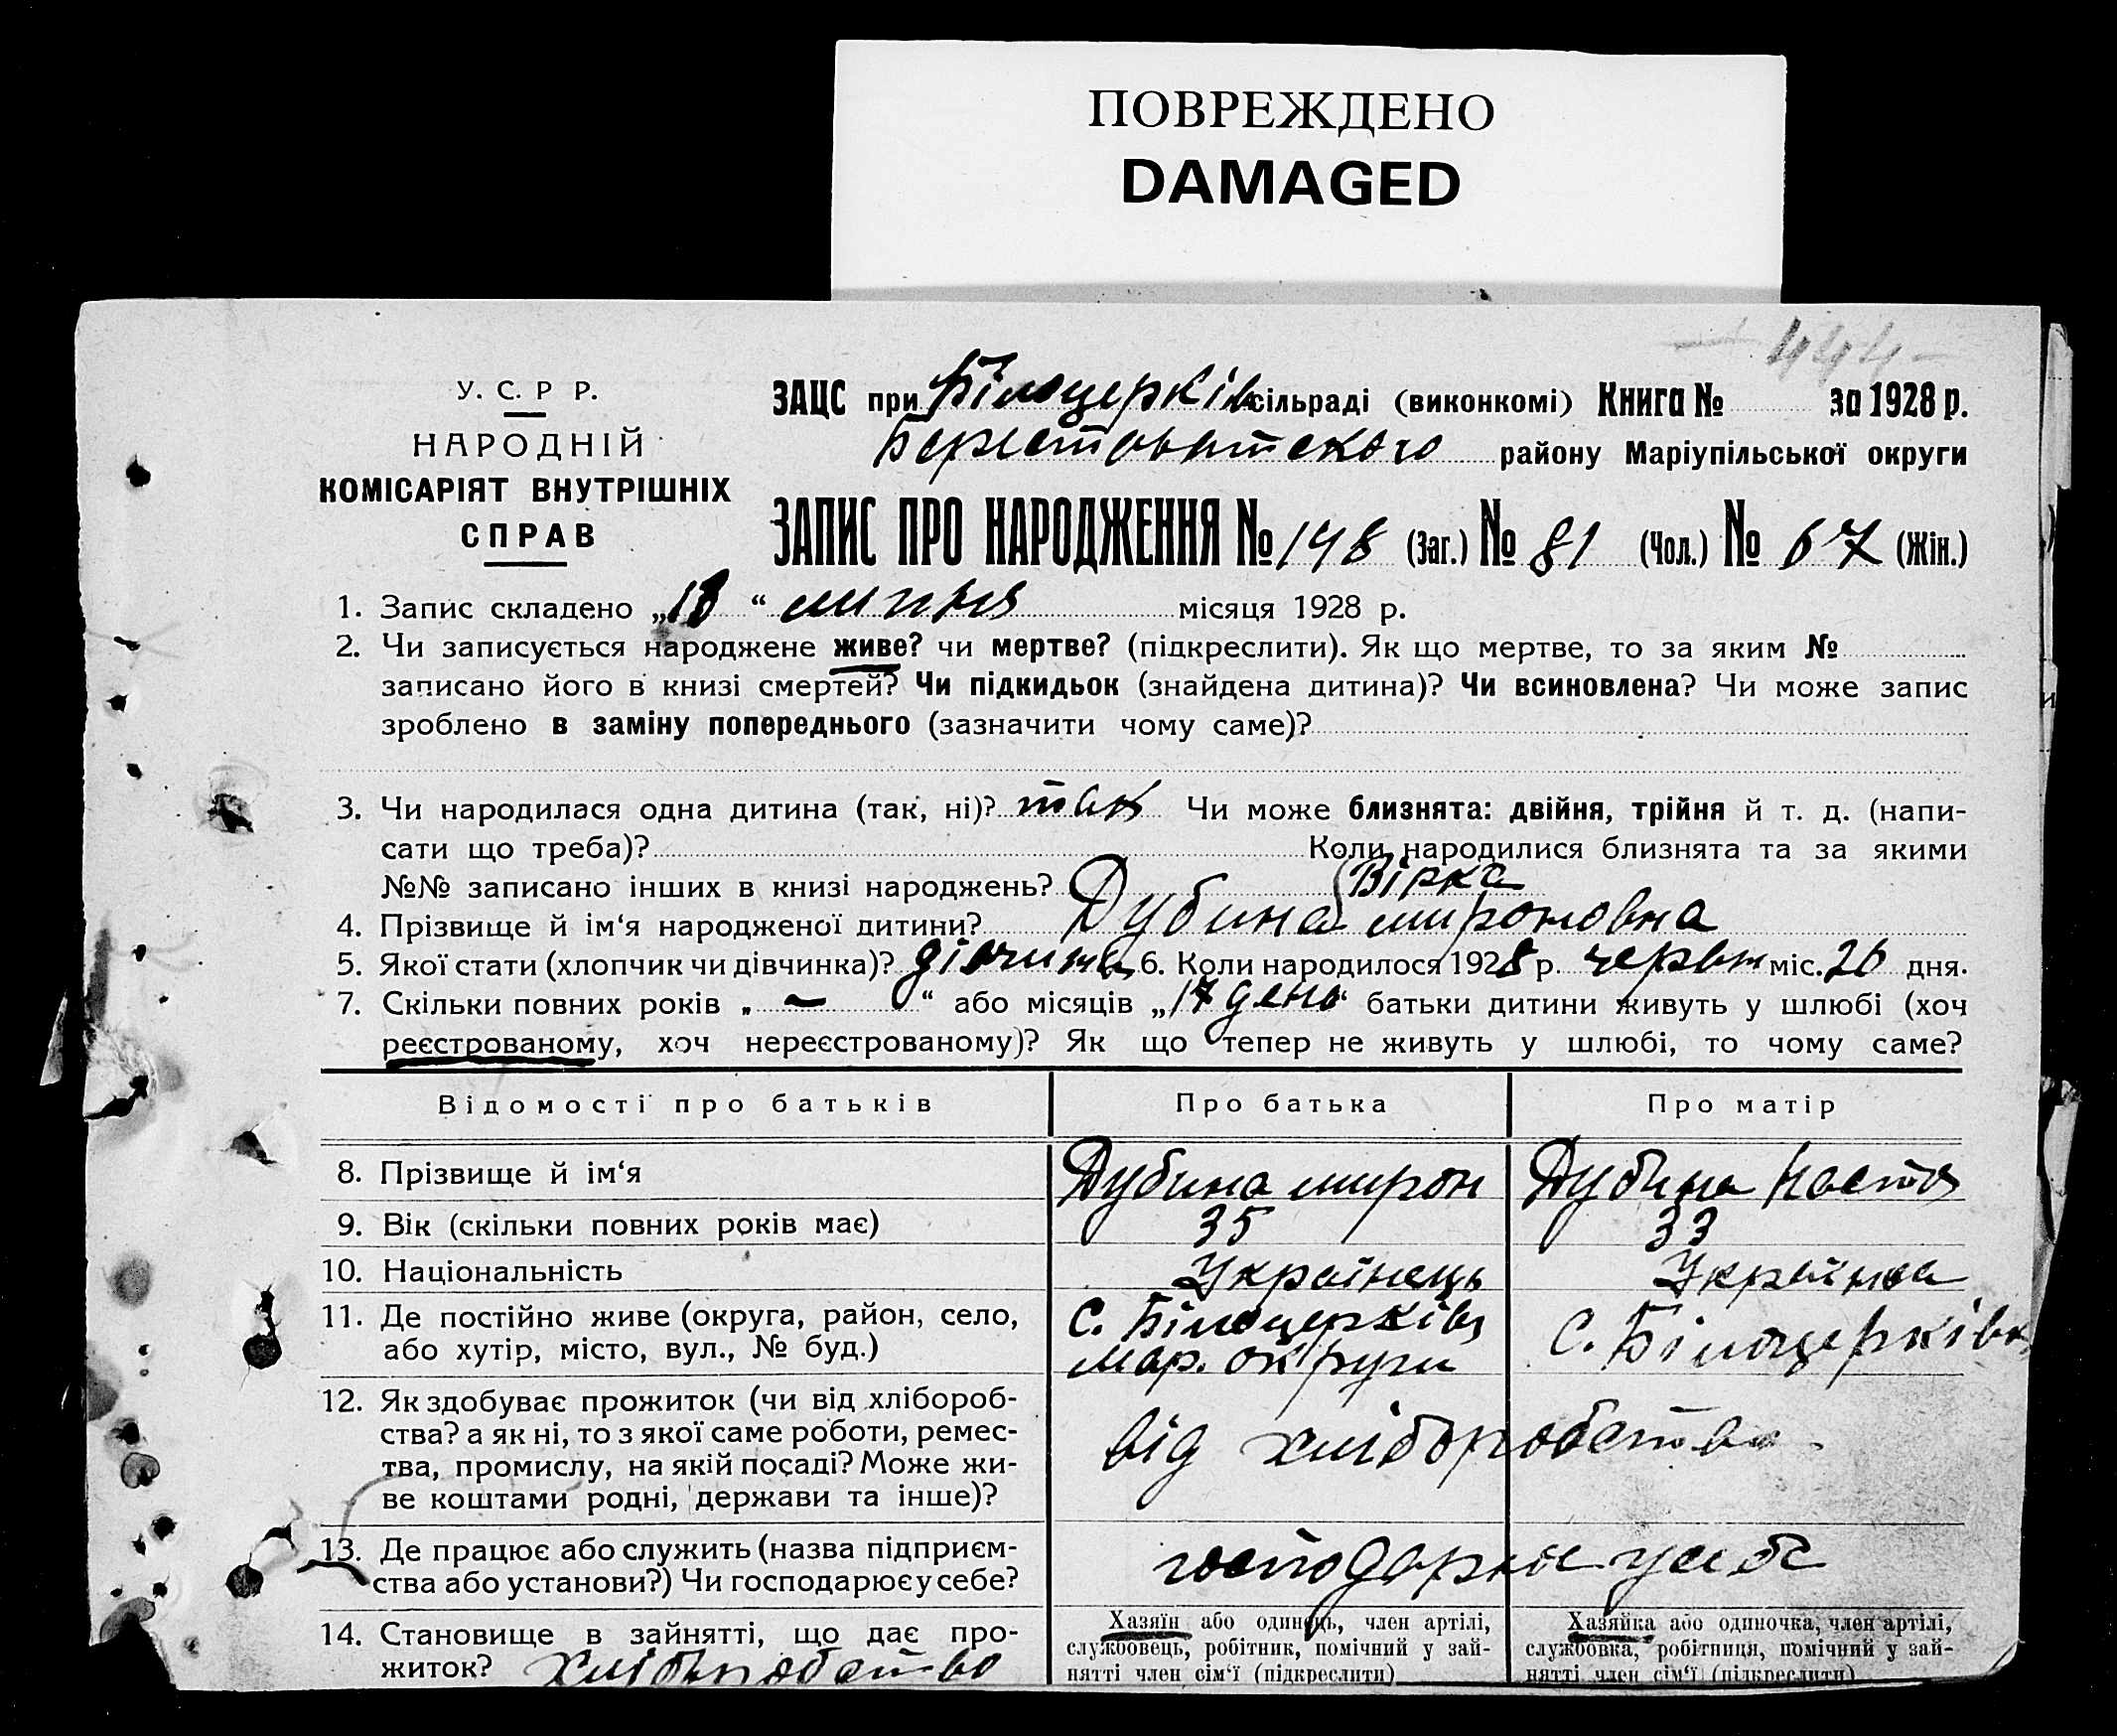 ПОВРЕЖДЕНО
DAMAGED
444
У. С. Р Р.
НАРОДНІЙ
КОМІСАРІЯТ ВНУТРІШНІХ
СПРАВ
ЗАЦС при Білоцерків сільраді (виконкомі) Книга № за 1928 р.
району Маріупільської округи
ЗАПИС ПРО НАРОДЖЕННЯ № 148 (Заг.) № 81 (Чол.) № 67 (Жін.)
1. Запис складено „13“ липня місяця 1928 р.
2. Чи записується народжене живе? чи мертве? (підкреслити). Як що мертве, то за яким №
записано його в книзі смертей? Чи підкидьок (знайдена дитина)? Чи всиновлена? Чи може запис
зроблено в заміну попереднього (зазначити чому саме)?
3. Чи народилася одна дитина (так, ні)? так Чи може близнята: двійня, трійня й т. д. (напи-
сати що треба)? Коли народилися близнята та за якими
№№ записано інших в книзі народжень? Вірка
4. Прізвище й ім‘я народженої дитини? Дубина мироновна
5. Якої стати (хлопчик чи дівчинка)? дівчина 6. Коли народилося 1928 р. червня міс. 26 дня.
7. Скільки повних років „ — “ або місяців „17 день“ батьки дитини живуть у шлюбі (хоч
реєстрованому, хоч нереєстрованому)? Як що тепер не живуть у шлюбі, то чому саме?
Відомості про батьків Про батька Про матір
8. Прізвище й ім‘я Дубина мирон Дубина Настя
9. Вік (скільки повних років має) 35 33
10. Національність Українець Українка
11. Де постійно живе (округа, район, село, С. Білоцерківц С. Білоцерківк
або хутір, місто, вул., № буд.) мар. округи
12. Як здобуває прожиток (чи від хлібороб-
ства? а як ні, то з якої саме роботи, ремес- від хліборобства
тва, промислу, на якій посаді? Може жи-
ве коштами родні, держави та інше)?
13. Де працює або служить (назва підприєм-
ства або установи?) Чи господарює у себе? у себе
14. Становище в зайнятті, що дає про- Хазяїн або одинець, член артілі, Хазяйка або одиночка, член артілі,
житок? хліборобство службовець, робітник, помічний у зай- службовка, робітниця, помічний у зай-
нятті член сім‘ї (підкреслити) нятті член сім‘ї (підкреслити)